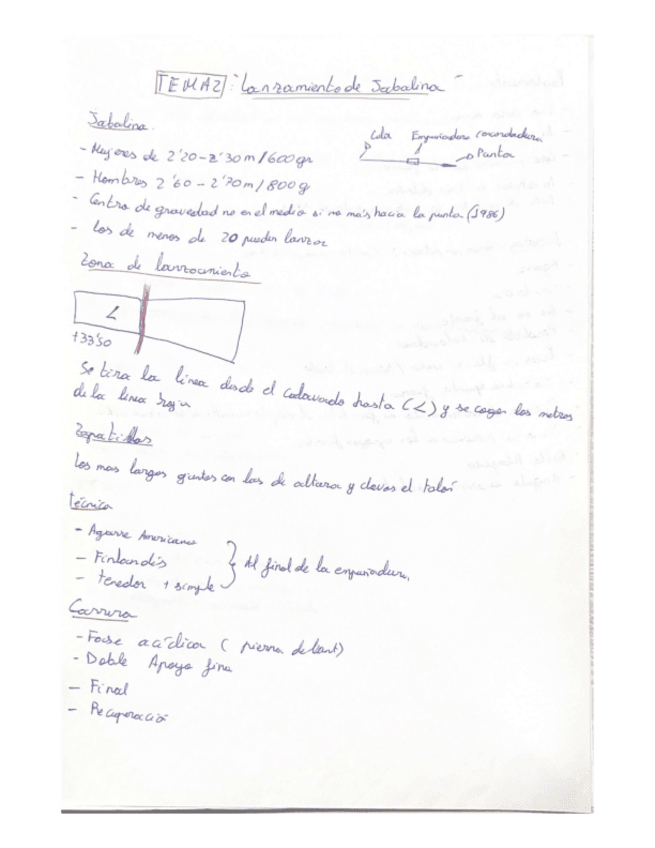 TEMA2: "Lanzamiento de Jabalina"
Jabalina.
Cola Empuñadura (acordadura)
Punta
- Mujeres de 2'20-2'30m/600gr
- Hombres 2'60-2'70m/800g
- Centro de gravedad no en el medio si no más hacia la punta (1986)
- Los de menos de 20 pueden lanzar
Zona de lanzamiento
+33'50
Se tira la linea desde el hasta (∠) y se cogen los metros
de la linea roja
Zapatillas
Los mas largos con las de altura y clavos el talón
técnica
- Agarre Americano
- Finlandés
- tenedor + simple
Al final de la empuñadura
Carrera
- Fase acíclica ( pierna delant)
- Doble Apoyo final
- Final
- Recuperación